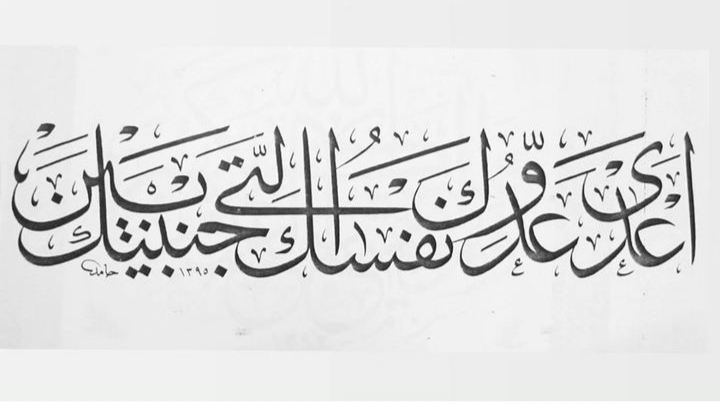 اَعْدٰى عَدُوِّكَ نَفْسُكَ الَّتٖى بَيْنَ جَنْبَيْكَ
حامد ١٣٩٥